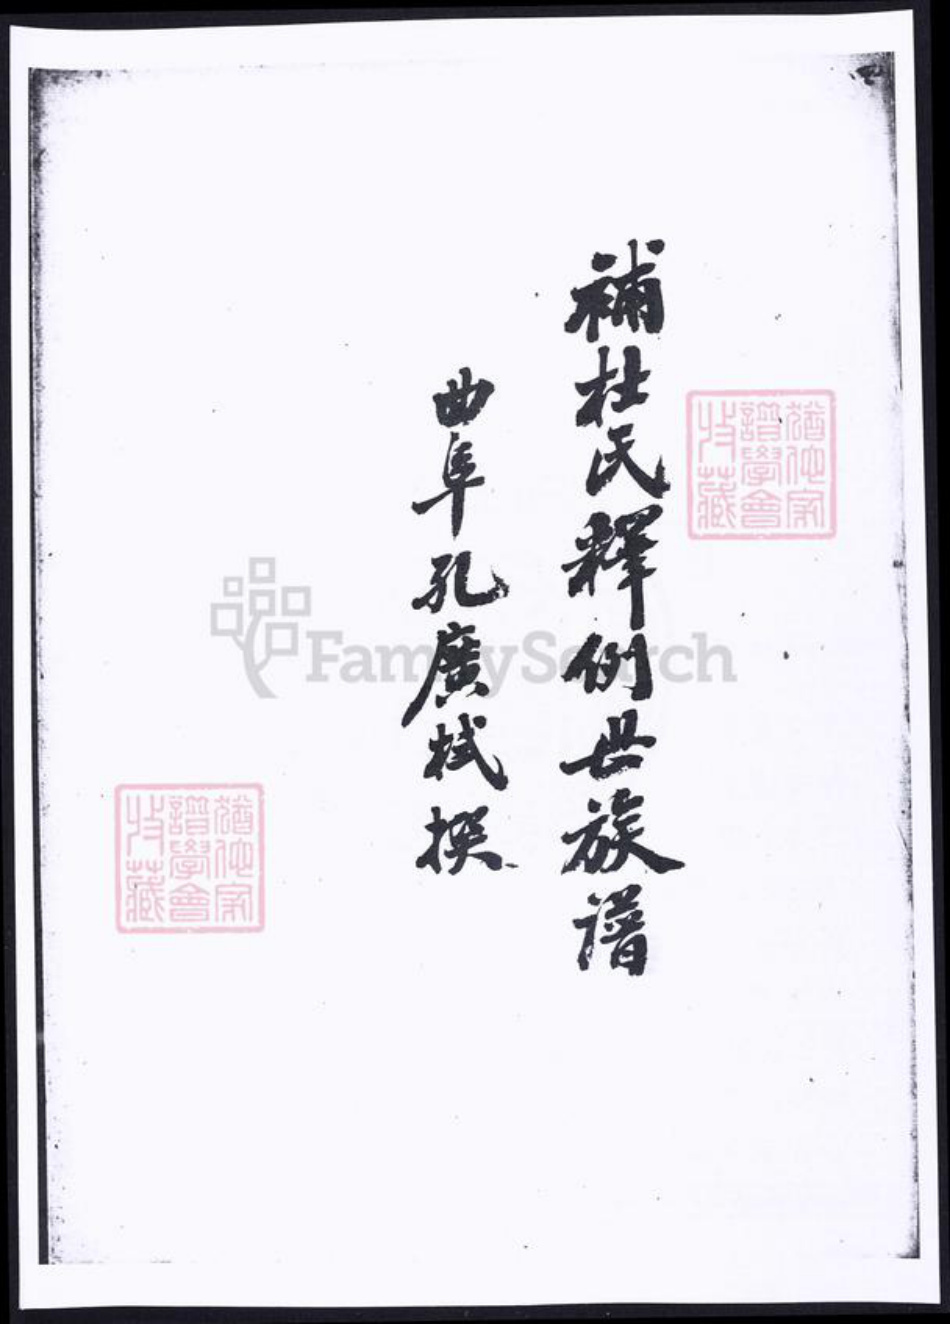 補杜氏釋例世族譜
曲阜孔廣栻撰
猶他家
譜學會
收藏
FamilySearch
猶他家
譜學會
收藏